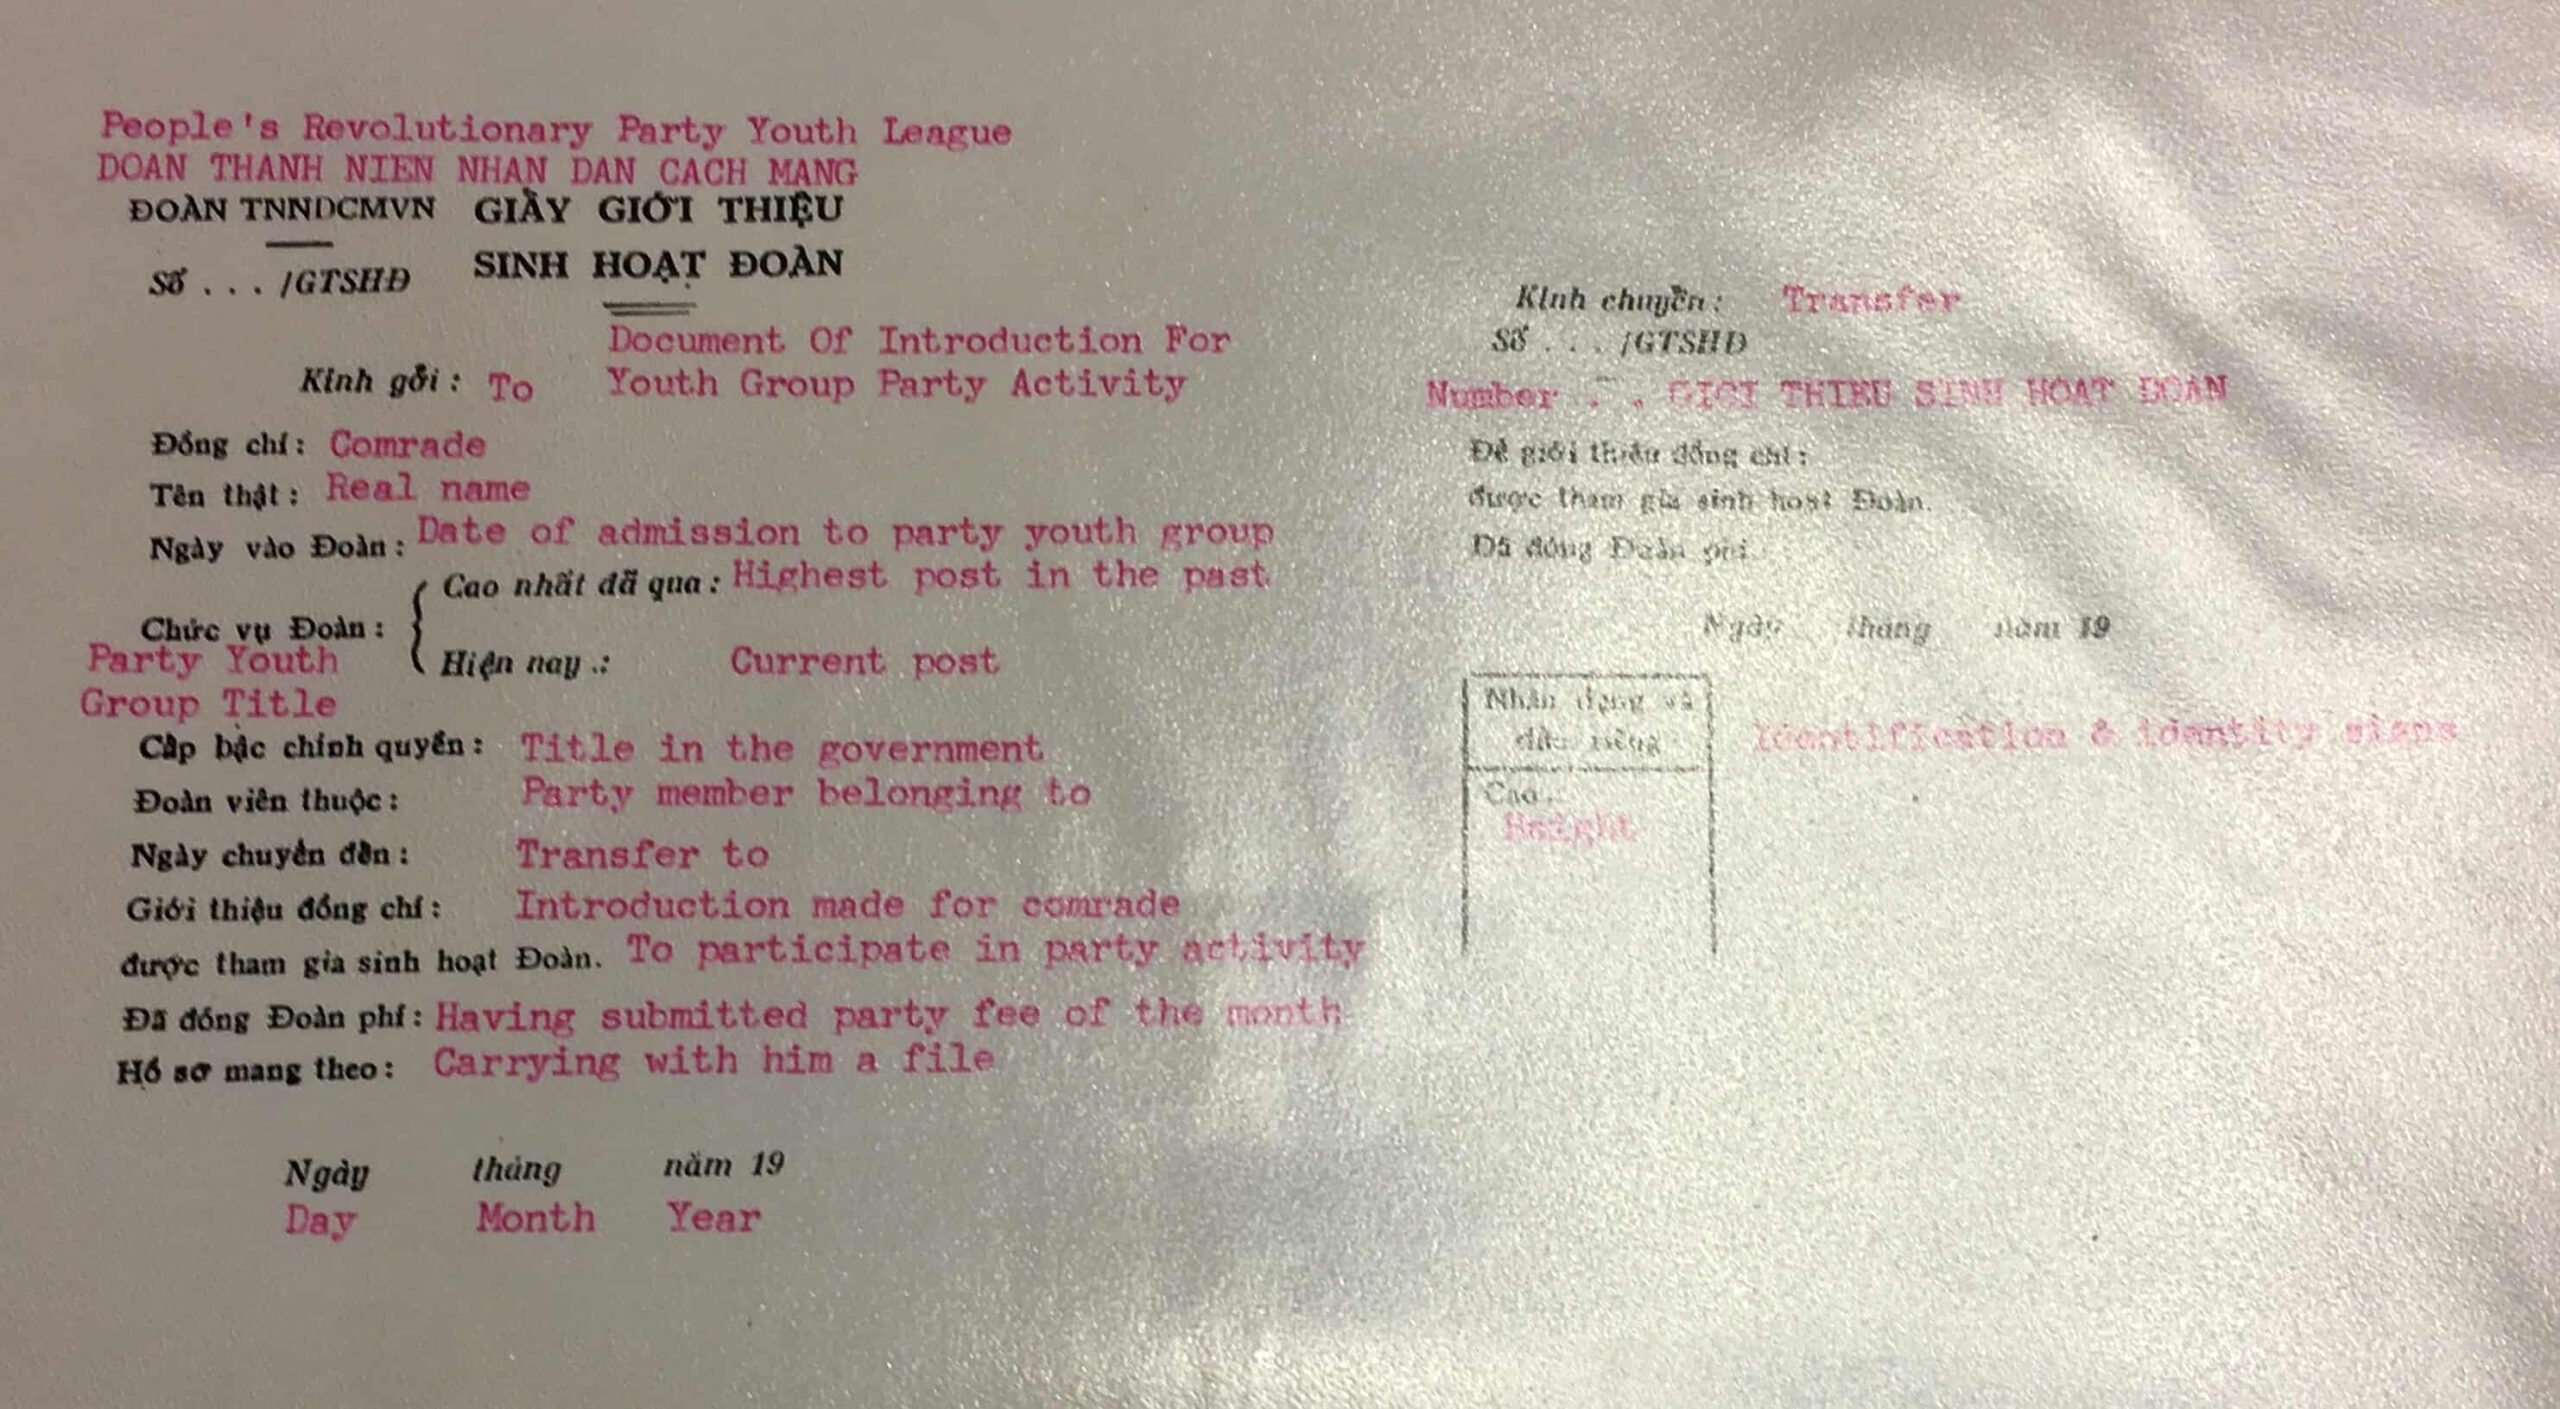 People's Revolutionary Party Youth League
DOAN THANH NIEN NHAN DAN CACH MANG
ĐOÀN TNNDCMVN GIẤY GIỚI THIỆU
Số . . . /GTSHĐ SINH HOẠT ĐOÀN
Document Of Introduction For
Kính gởi : To Youth Group Party Activity
Đồng chí : Comrade
Tên thật : Real name
Ngày vào Đoàn : Date of admission to party youth group
Cao nhất đã qua : Highest post in the past
Chức vụ Đoàn :
Party Youth Hiện nay .: Current post
Group Title
Cấp bậc chính quyền : Title in the government
Đoàn viên thuộc : Party member belonging to
Ngày chuyển đến : Transfer to
Giới thiệu đồng chí : Introduction made for comrade
được tham gia sinh hoạt Đoàn. To participate in party activity
Đã đóng Đoàn phí : Having submitted party fee of the month
Hồ sơ mang theo : Carrying with him a file
Ngày tháng năm 19
Day Month Year
Kính chuyển : Transfer
Số . . . /GTSHĐ
Number . . GIOI THIEU SINH HOAT DOAN
Để giới thiệu đồng chí :
được tham gia sinh hoạt Đoàn.
Đã đóng Đoàn phí.
Ngày tháng năm 19
Nhân dạng và
Identification & identity signs
Cao
Height